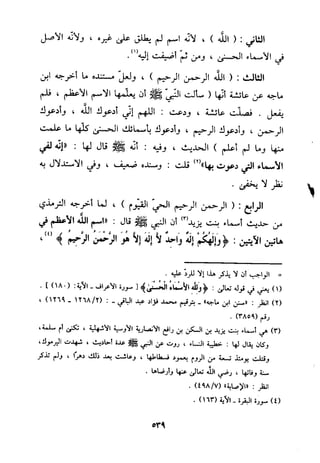 الثاني : ( الله ) ، لأنه اسم لم يطلق على غيره ، ولأنه الأصل
في الأسماء الحسنى ، ومن ثم أضيفت إليه(١) .
الثالث : ( الله الرحمن الرحيم ) ، ولعل مستنده ما أخرجه ابن
ماجه عن عائشة ( أنها سألت النبي ﷺ أن يعلمها الاسم الأعظم ، فلم
يفعل . فصلت ، ودعت : اللهم إني أدعوك الله ، وأدعوك
الرحمن ، وأدعوك الرحيم ، وأدعوك بأسمائك الحسنى كلها ما علمت
منها وما لم أعلم ) الحديث ، وفيه : أنه ﷺ قال لها : «إنه لفي
الأسماء التي دعوتِ بها»(٢) قلت : وسنده ضعيف ، وفي الاستدلال به
نظر لا يخفى .
الرابع : ( الرحمن الرحيم الحي القيوم ) ، لما أخرجه الترمذي
من حديث أسماء بنت يزيد(٣) أن النبي ﷺ قال : «اسم الله الأعظم في
هاتين الآيتين : ﴿ وإلهكم إله واحد لا إله إلا هو الرحمن الرحيم ﴾ (٤) ،
= أن الواجب أن لا يذكر هذا إلا للرد عليه .
(١) يعني في قوله تعالى : ﴿ ولله الأسماء الحسنى ﴾ [ سورة الأعراف ـ الآية : (١٨٠) ] .
(٢) انظر : «سنن ابن ماجه» ـ بترقيم محمد فؤاد عبد الباقي ـ : (١٢٦٨/٢ ، ١٢٦٩) ،
رقم (٣٨٥٩) .
(٣) هي أسماء بنت يزيد بن السكن بن رافع الأنصارية الأوسية الأشهلية ، تكنى أم سلمة ،
وكان يقال لها : خطيبة النساء ، روت عن النبي ﷺ عدة أحاديث ، شهدت اليرموك ،
وقتلت يومئذ تسعة من الروم بعمود فسطاطها ، وعاشت بعد ذلك دهراً ، ولم تذكر
سنة وفاتها ، رضي الله تعالى عنها وأرضاها .
انظر : «الإصابة» (٤٩٨/٧) .
(٤) سورة البقرة ـ الآية (١٦٣) .
٥٣٩